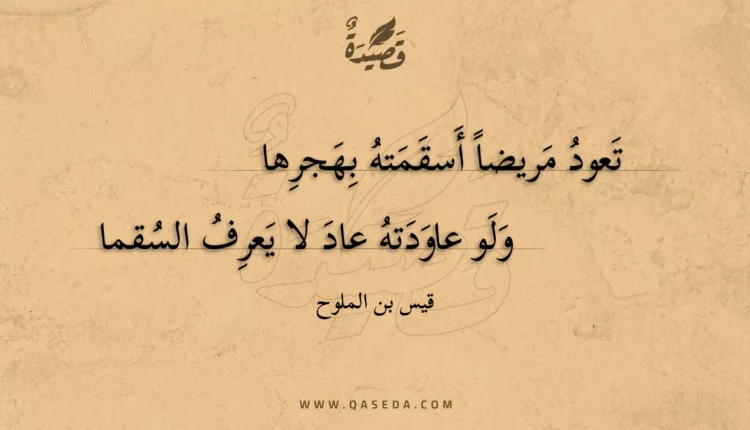 قَصِيْدَةٌ
تَعودُ مَريضاً أَسقَمَتهُ بِهَجرِها
وَلَو عاوَدَتهُ عادَ لا يَعرِفُ السُقما
قيس بن الملوح
WWW.QASEDA.COM